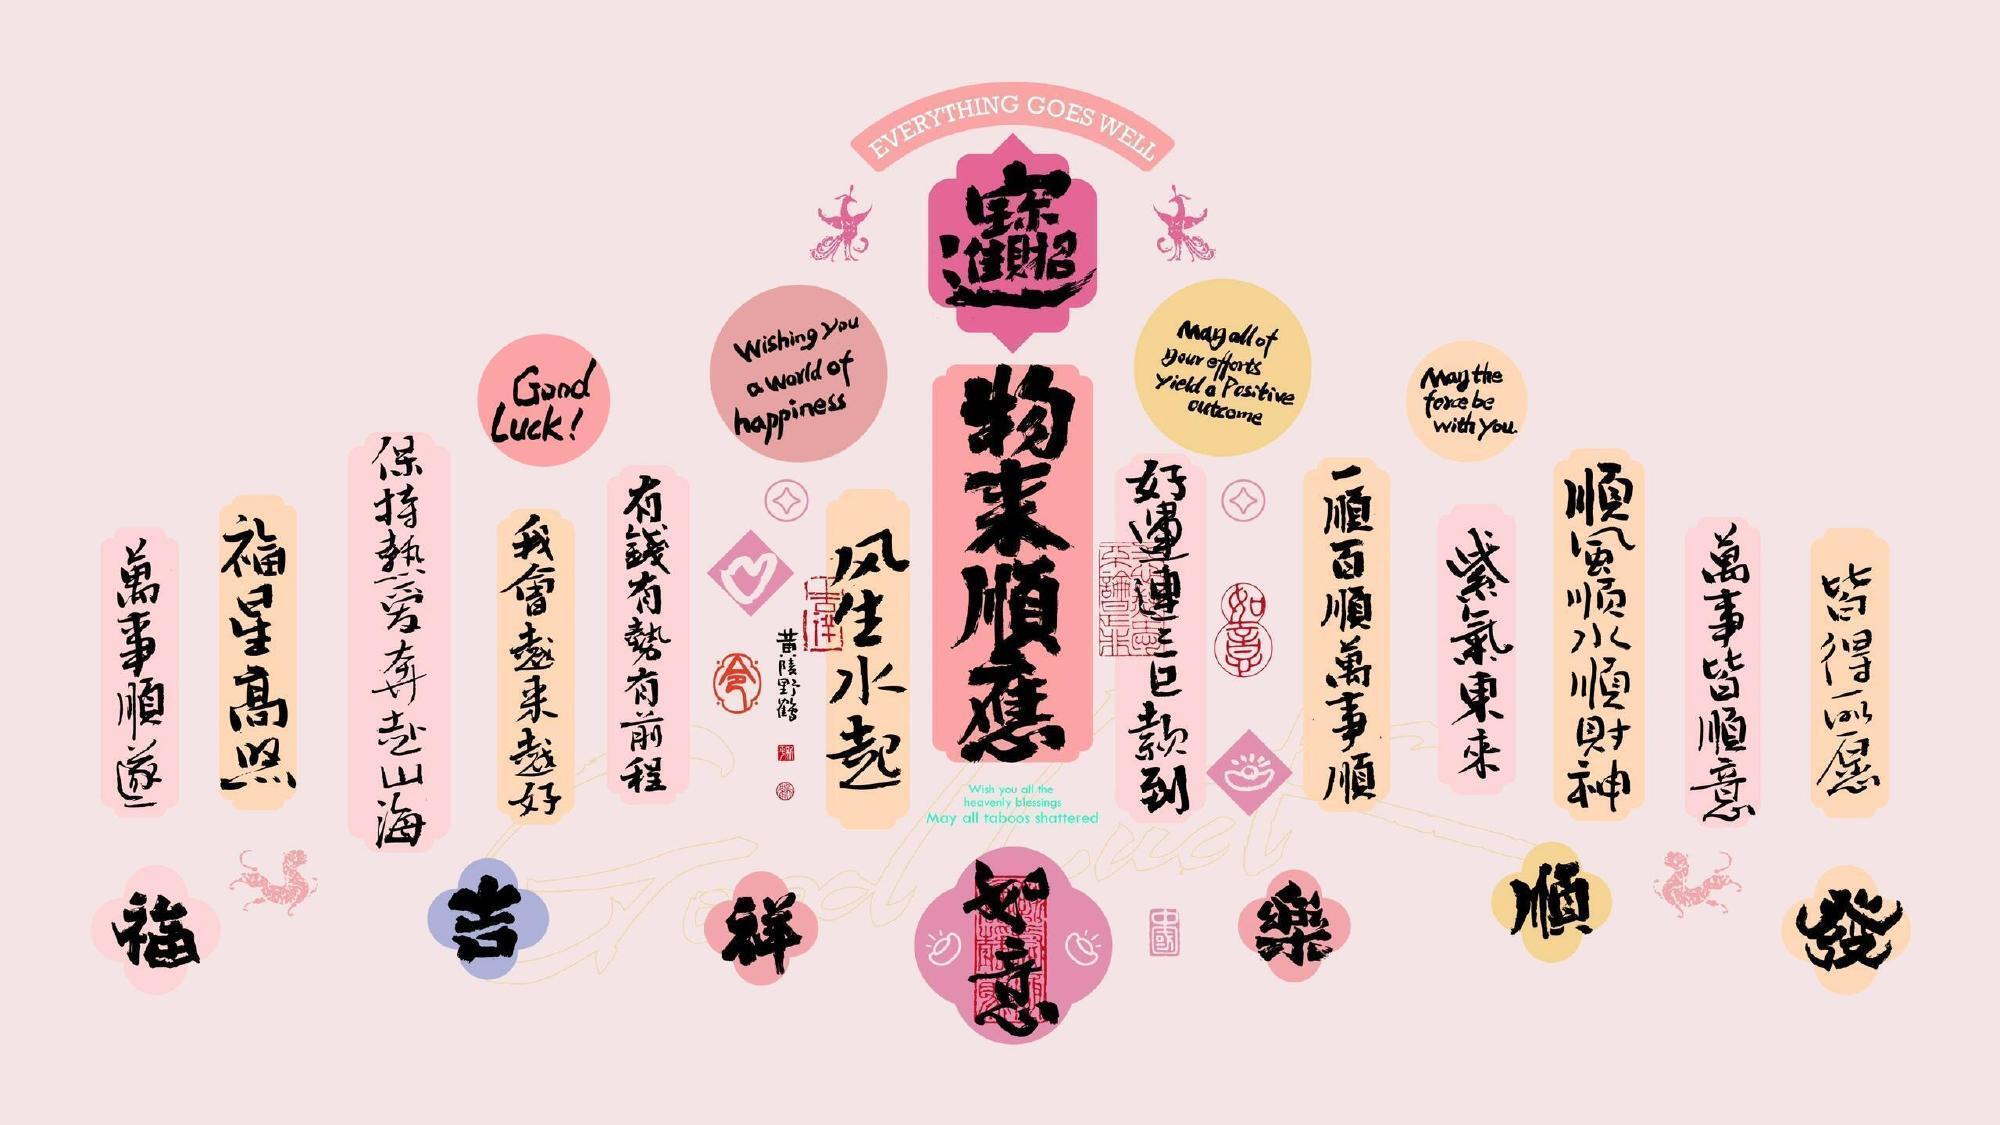 EVERYTHING GOES WELL
招財進寳
Good
Luck!
Wishing you
a world of
happiness
May all of
your efforts
Yield a Positive
outcome
May the
force be
with you.
萬事順遂
福星高照
保持熱爱奔赴山海
我會越来越好
有錢有勢有前程
黄陵野鶴
风生水起
物来順應
好運連三巳款到
一順百順萬事順
紫氣東来
順风顺水順财神
萬事皆順意
皆得所愿
吉祥
令
如意
Wish you all the
heavenly blessings
May all taboos shattered
Good Luck
福
吉
祥
如意
中國
樂
順
發